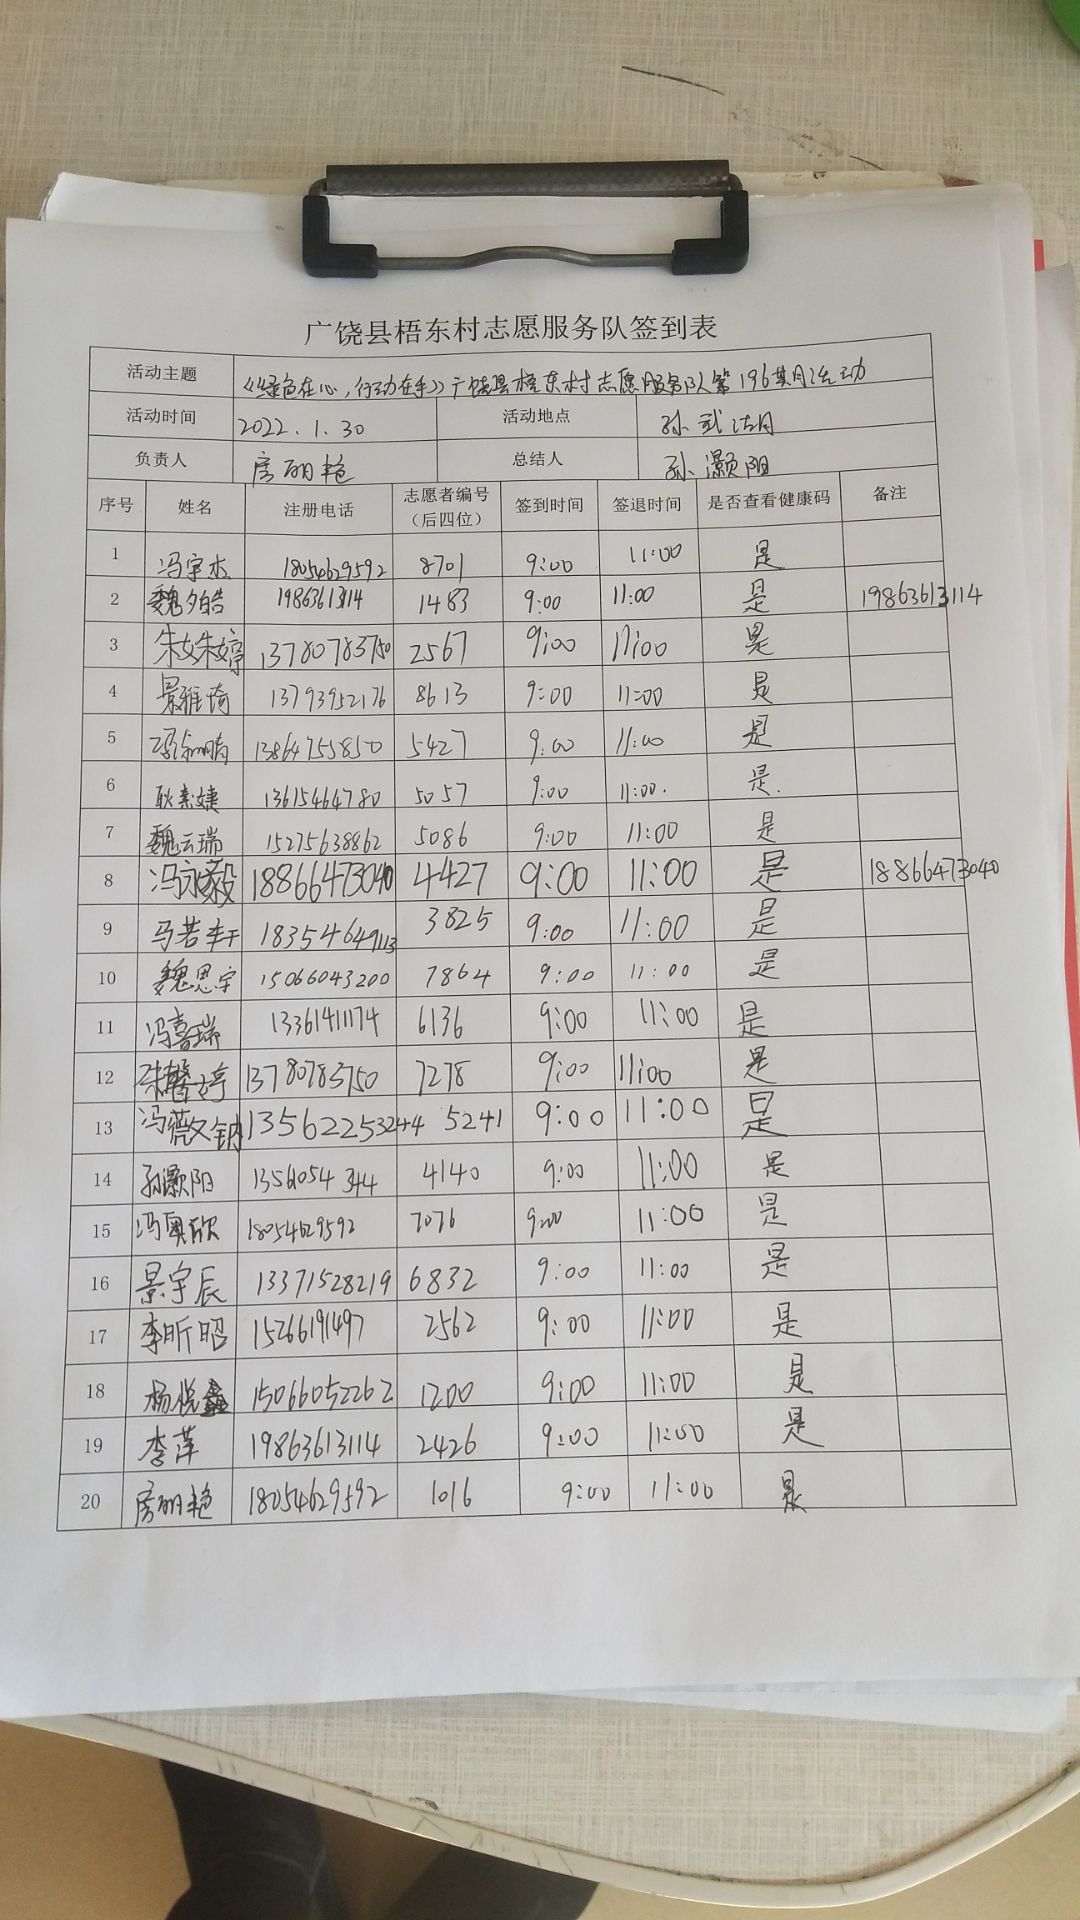 广饶县梧东村志愿服务队签到表
活动主题 《绿色在心,行动在手》广饶县梧东村志愿服务队第196期活动
活动时间 2022.1.30 活动地点 孙武湖
负责人 房丽艳 总结人 孙灏阳
序号 姓名 注册电话 志愿者编号（后四位） 签到时间 签退时间 是否查看健康码 备注
1 冯宇杰 18054629592 8701 9:00 11:00 是
2 魏夕皓 19863613114 1483 9:00 11:00 是 19863613114
3 朱姝婷 13780783750 2567 9:00 11:00 是
4 景雅琦 13793952176 8613 9:00 11:00 是
5 13864755850 5427 9:00 11:00 是
6 耿素婕 13615464780 5057 9:00 11:00. 是.
7 魏云瑞 15275638862 5086 9:00 11:00 是
8 冯永毅 18866473040 4427 9:00 11:00 是 18866473040
9 马若 18354649113 3825 9:00 11:00 是
10 魏思宇 15066043200 7864 9:00 11:00 是
11 冯喜瑞 13361411174 6136 9:00 11:00 是
12 朱馨婷 13780783750 7278 9:00 11:00 是
13 冯薇 13562253244 5241 9:00 11:00 是
14 孙灏阳 13561054344 4140 9:00 11:00 是
15 冯奥欣 18054629592 7076 9:00 11:00 是
16 景宇辰 13371528219 6832 9:00 11:00 是
17 李昕昭 15266191497 2562 9:00 11:00 是
18 杨悦鑫 15066052262 1200 9:00 11:00 是
19 李萍 19863613114 2426 9:00 11:00 是
20 房丽艳 18054629592 1016 9:00 11:00 是